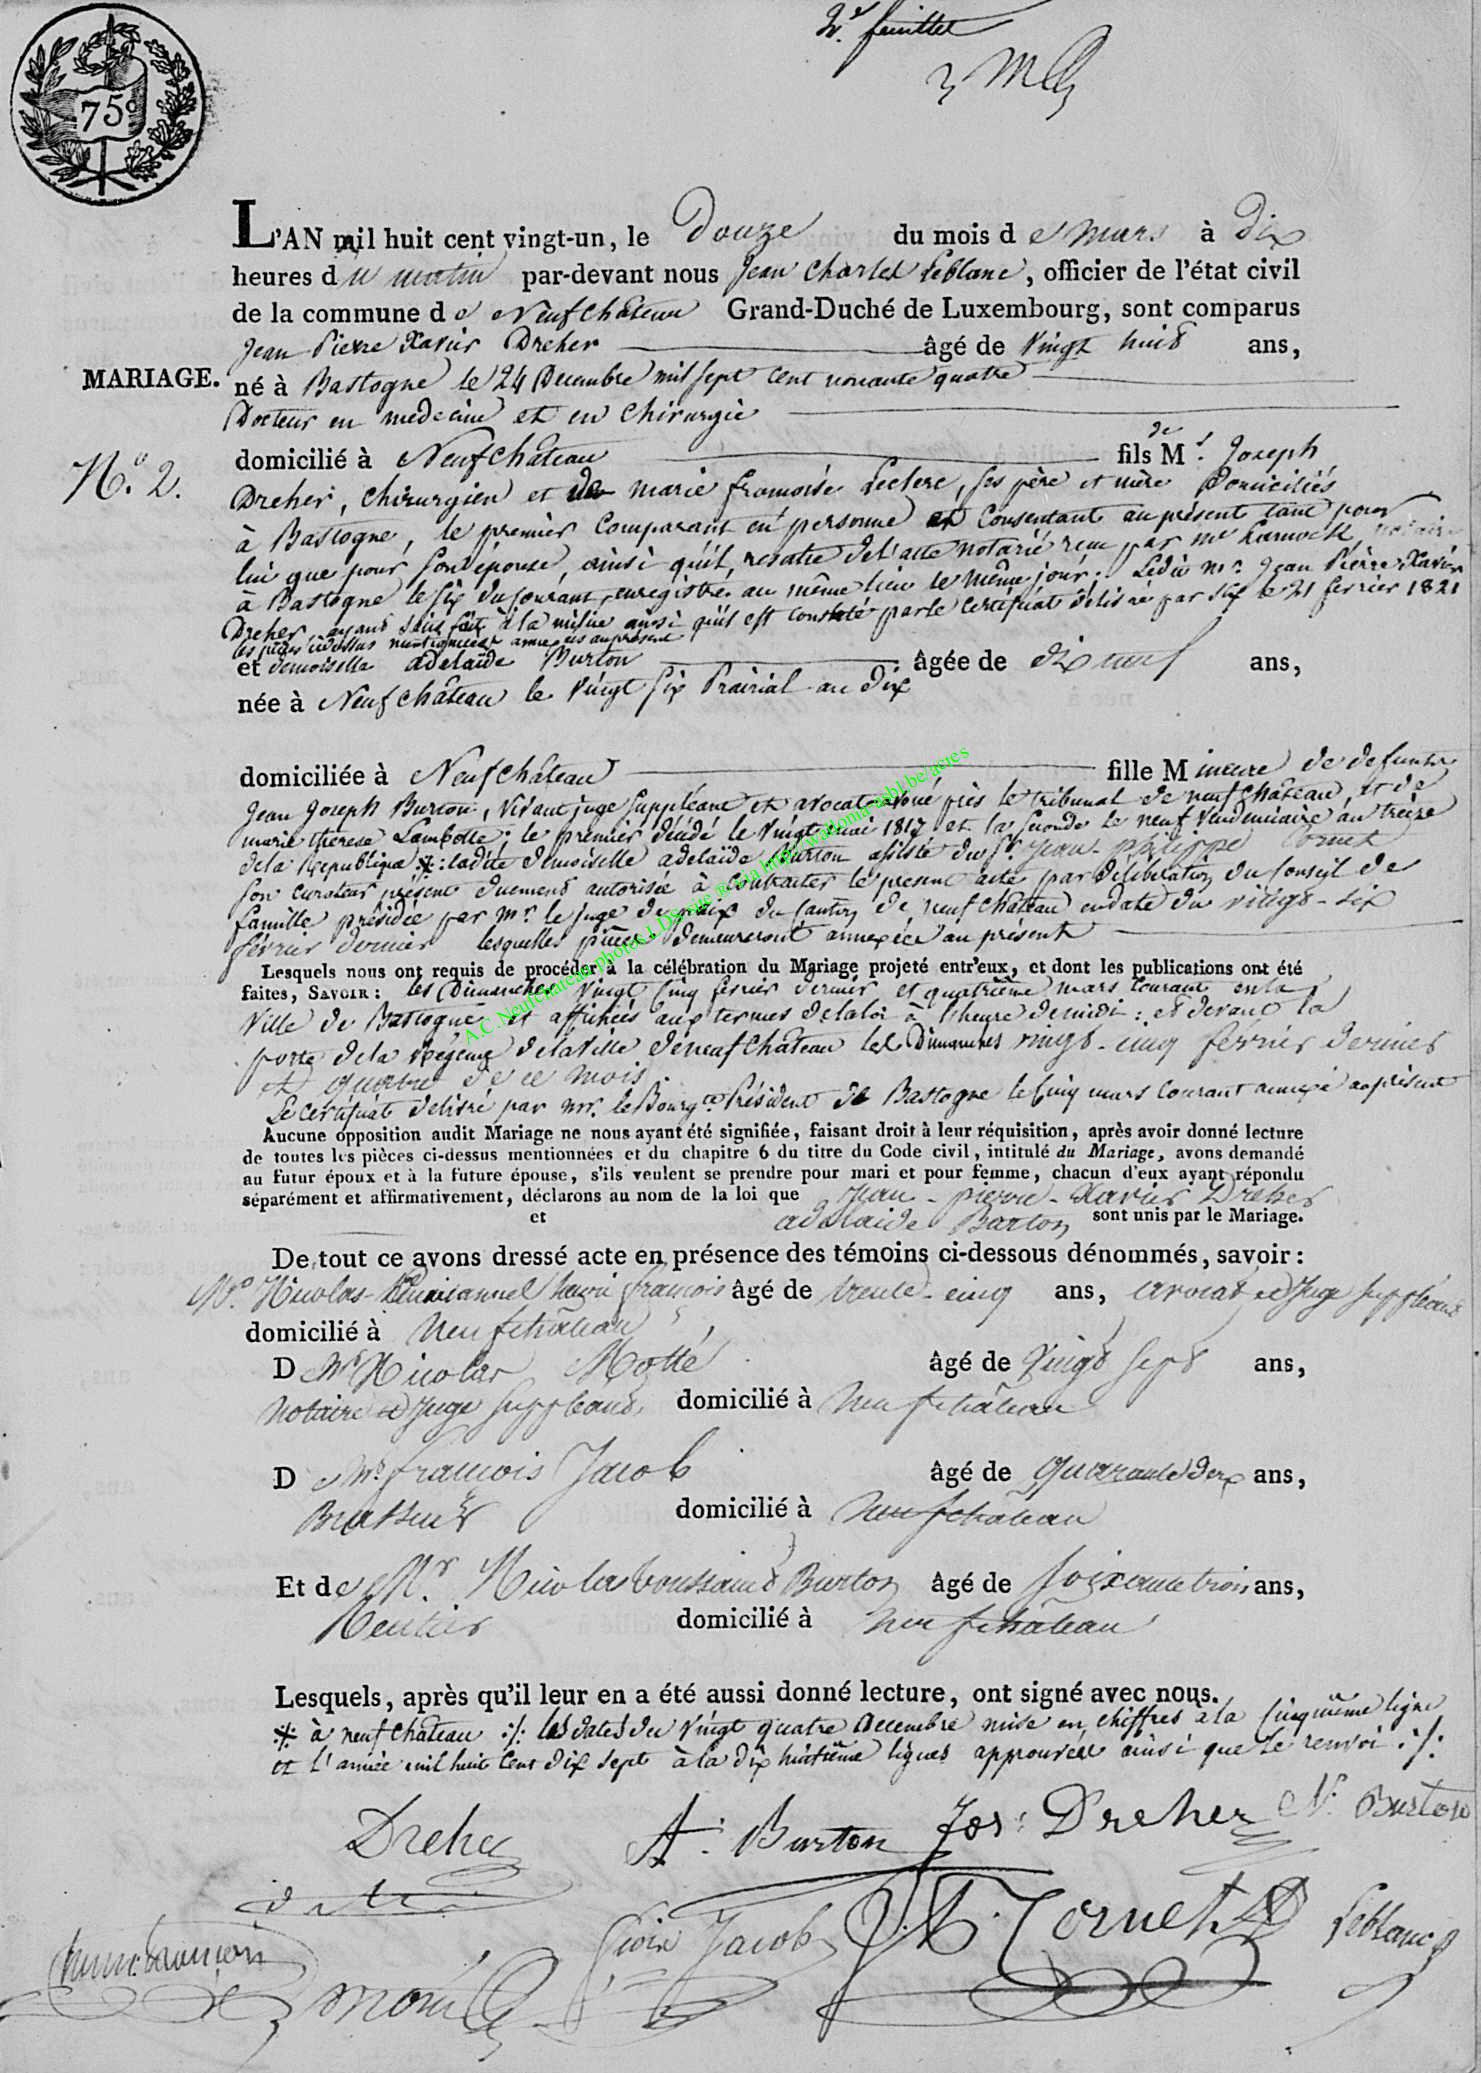 2.e feuillet
75c
L'AN mil huit cent vingt-un, le Douze du mois de mars à Dix
heures du matin par-devant nous Jean Charles Leblanc, officier de l'état civil
de la commune de Neufchâteau Grand-Duché de Luxembourg, sont comparus
Jean Pierre Xavier Dreher âgé de Vingt huit ans,
MARIAGE.
né à Bastogne le 24 Decembre mil sept cent nonante quatre
Docteur en medecine et en Chirurgie
N.o 2.
domicilié à Neufchâteau fils de M.r Joseph
Dreher, chirurgien et de marie françoise Leclere, ses père et mère Domiciliés
à Bastogne, le premier Comparant en personne et Consentant au présent tant pour
lui que pour son épouse, ainsi qu'il resulte de l'acte notarié reçu par me notaire
à Bastogne le six du courant, enregistré au même lieu le même jour. Ledit mr. Jean Pierre Xavier
Dreher ayant satisfait à la milice ainsi qu'il est constaté par le Certificat délivré par le 21 fevrier 1821
les pièces cidessus mentionnées annexées au présent
et demoiselle adelaïde Burton âgée de dix neuf ans,
née à Neufchâteau le Vingt six Prairial an dix
domiciliée à Neufchâteau fille Mineure de defunts
Jean Joseph Burton, vivant juge suppléant et avocat avoué près le tribunal de neufchâteau, et de
marie therese Lambotte; le premier décédé le Vingt mai 1817 et la seconde le neuf Vendemiaire an treize
de la République ※ : ladite demoiselle adelaïde Burton assistée du Sr. Jean-philippe Cornet
son curateur présent duement autorisée à contracter le présent acte par délibération du Conseil de
famille présidée par mr. le juge de paix du Canton de neufchâteau en date du vingt-six
février dernier lesquelles pièces demeureront annexées au présent
Lesquels nous ont requis de procéder à la célébration du Mariage projeté entr'eux, et dont les publications ont été
faites, SAVOIR : les Dimanches Vingt Cinq fevrier dernier et quatrième mars courant en la
Ville de Bastogne et affichées aux termes de la loi à l'heure de midi : et devant la
porte de la Régence de la Ville de neufchâteau les Dimanches vingt-cinq février dernier
et quatre de ce mois.
Le certificat délivré par mr. le Bourgtre Président de Bastogne le Cinq mars Courant annexé au présent
Aucune opposition audit Mariage ne nous ayant été signifiée, faisant droit à leur réquisition, après avoir donné lecture
de toutes les pièces ci-dessus mentionnées et du chapitre 6 du titre du Code civil, intitulé du Mariage, avons demandé
au futur époux et à la future épouse, s'ils veulent se prendre pour mari et pour femme, chacun d'eux ayant répondu
séparément et affirmativement, déclarons au nom de la loi que Jean-pierre-Xavier Dreher
et adelaide Burton sont unis par le Mariage.
De tout ce avons dressé acte en présence des témoins ci-dessous dénommés, savoir :
Mr. Nicolas henri françois âgé de trente-cinq ans, avocat et Juge suppléant
domicilié à Neufchâteau
De Mr Nicolas Motté âgé de Vingt Sept ans,
Notaire et Juge suppléant domicilié à Neufchâteau
De Mr françois Jacob âgé de quarante deux ans,
Brasseur domicilié à Neufchâteau
Et de Mr. Nicolas toussaint Burton âgé de soixante trois ans,
Rentier domicilié à Neufchâteau
Lesquels, après qu'il leur en a été aussi donné lecture, ont signé avec nous.
※ à neufchâteau :/: les dates du vingt quatre Decembre mise en chiffres à la Cinquième ligne
et l'année mil huit Cent dix sept à la dix huitième lignes approuvées ainsi que le renvoi :/:
Dreher A. Burton Jos: Dreher N. Burton
Jacob Cornet Leblanc
A.C. Neufchateau photos LDS mise en via http://wallonia-asbl.be/actes